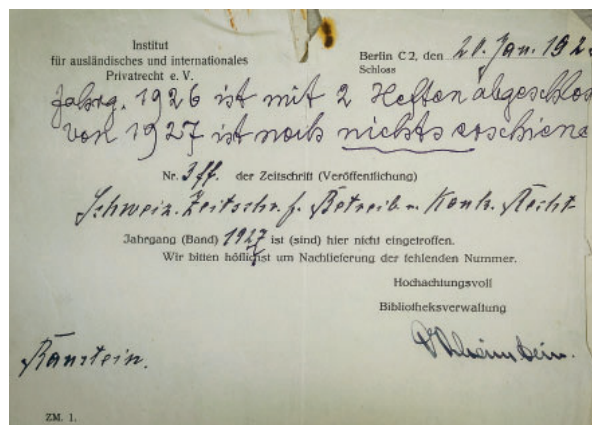 Institut
für ausländisches und internationales
Privatrecht e. V.
Berlin C 2, den 20. Jan. 192
Schloss
Jahrg. 1926 ist mit 2 Heften abgeschlos
von 1927 ist noch nichts erschiene
Nr. 3 ff. der Zeitschrift (Veröffentlichung)
Schweiz. Zeitschr. f. Betreib. u. Konk. Recht
Jahrgang (Band) 1927 ist (sind) hier nicht eingetroffen.
Wir bitten höflichst um Nachlieferung der fehlenden Nummer.
Hochachtungsvoll
Bibliotheksverwaltung
ZM. 1.